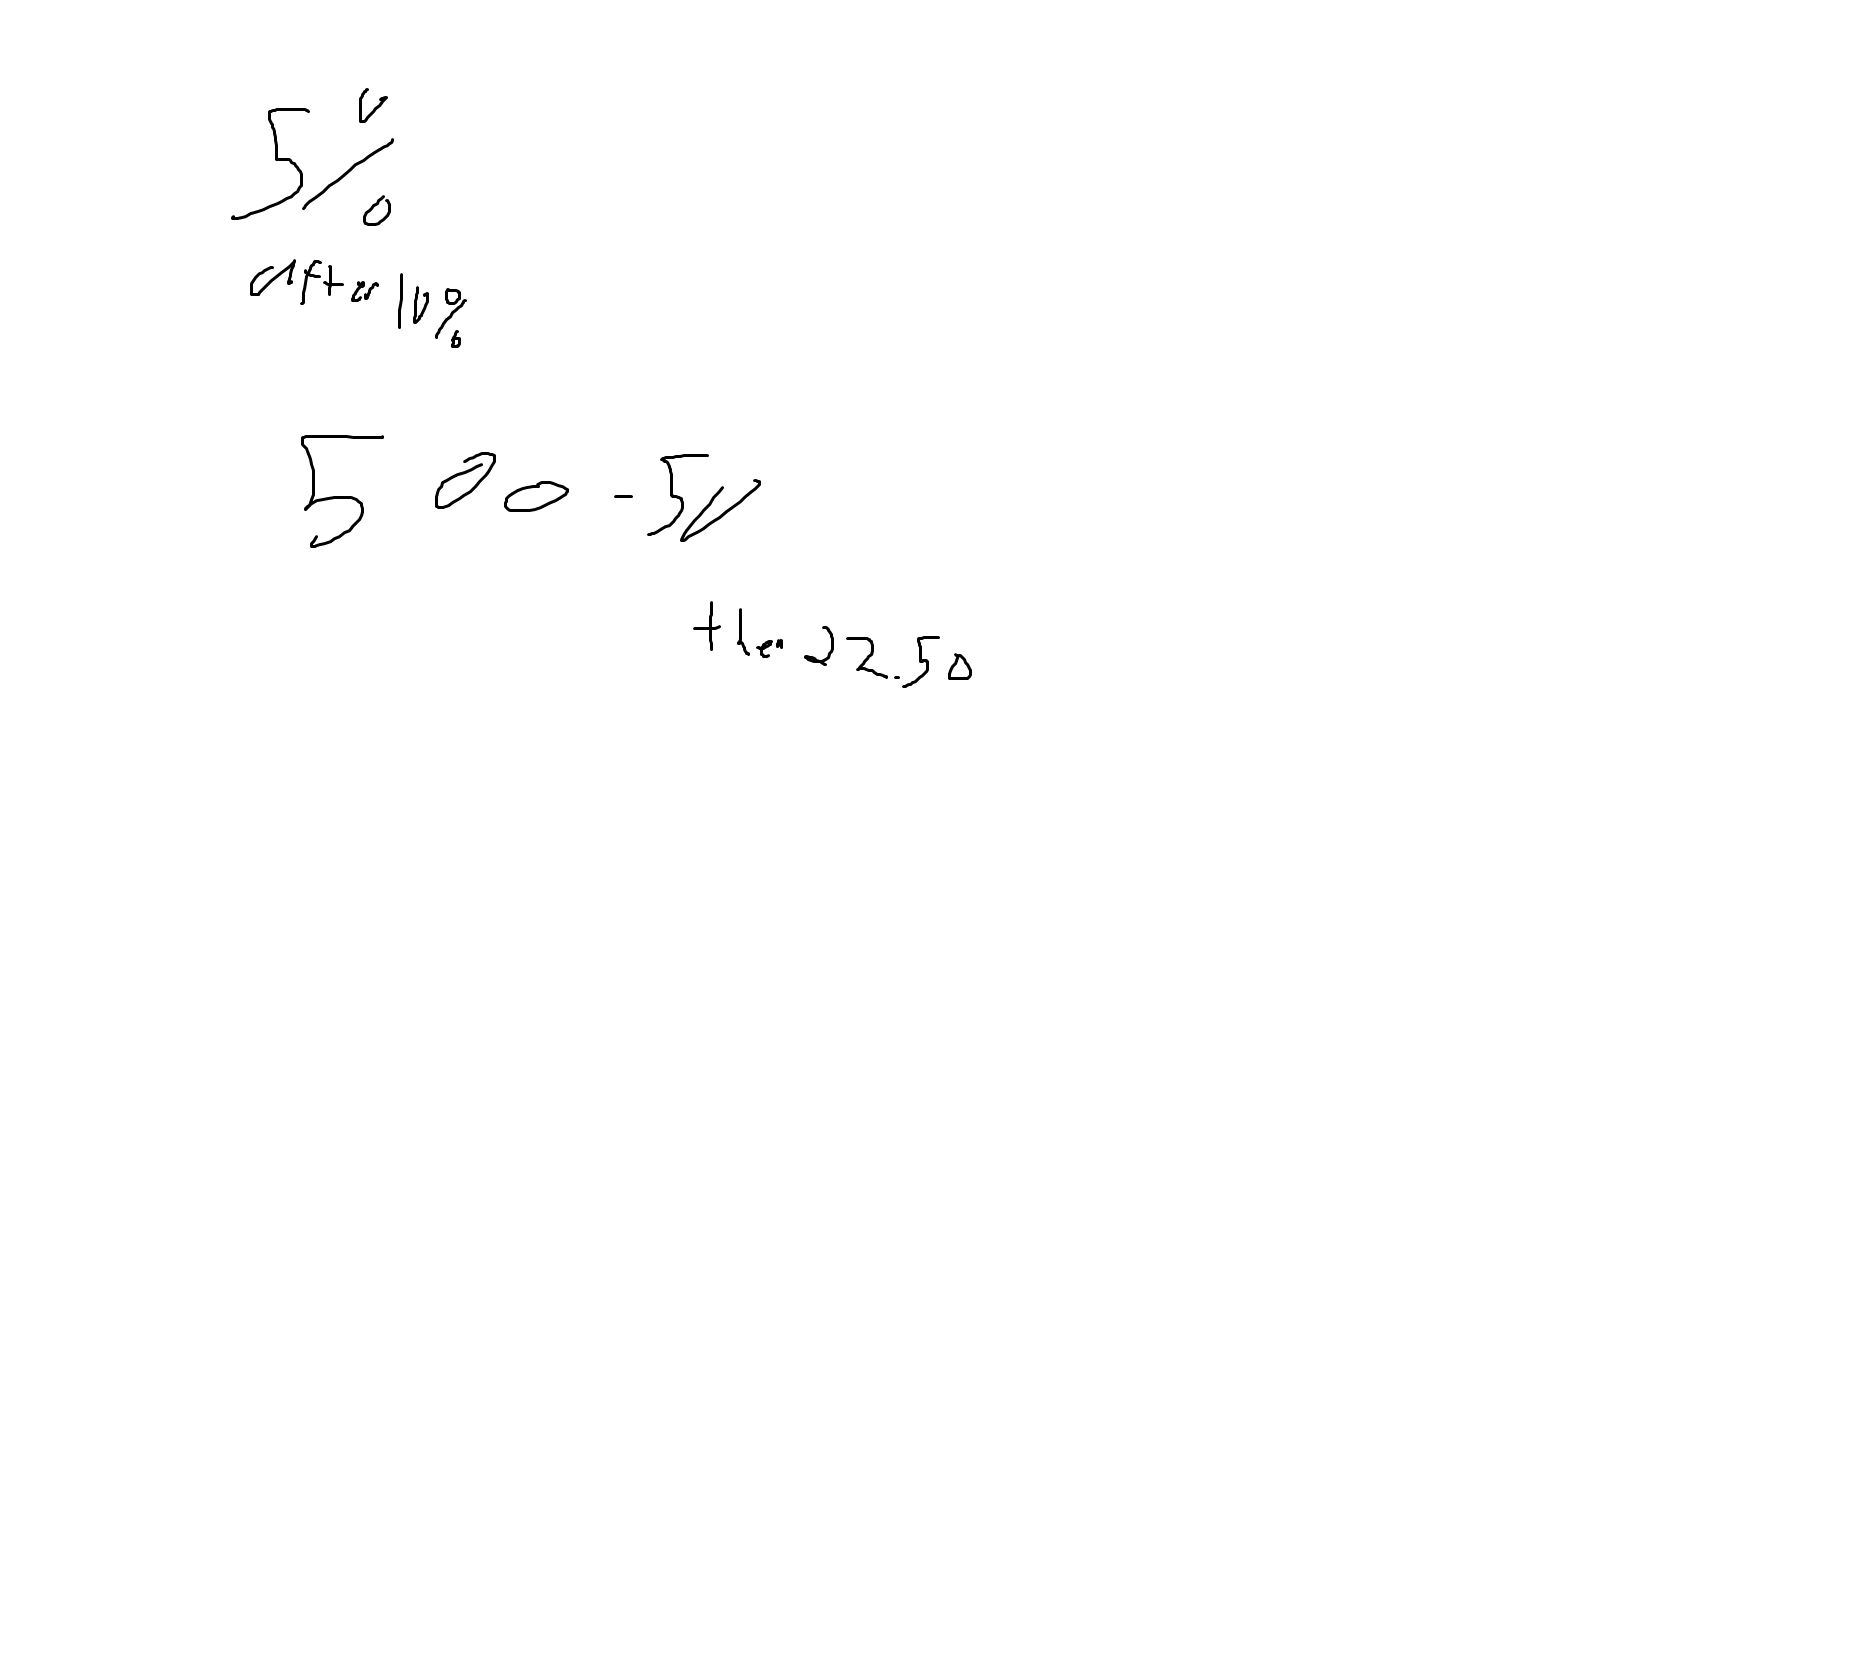 5%
after 10%
500 - 50
then 22.50